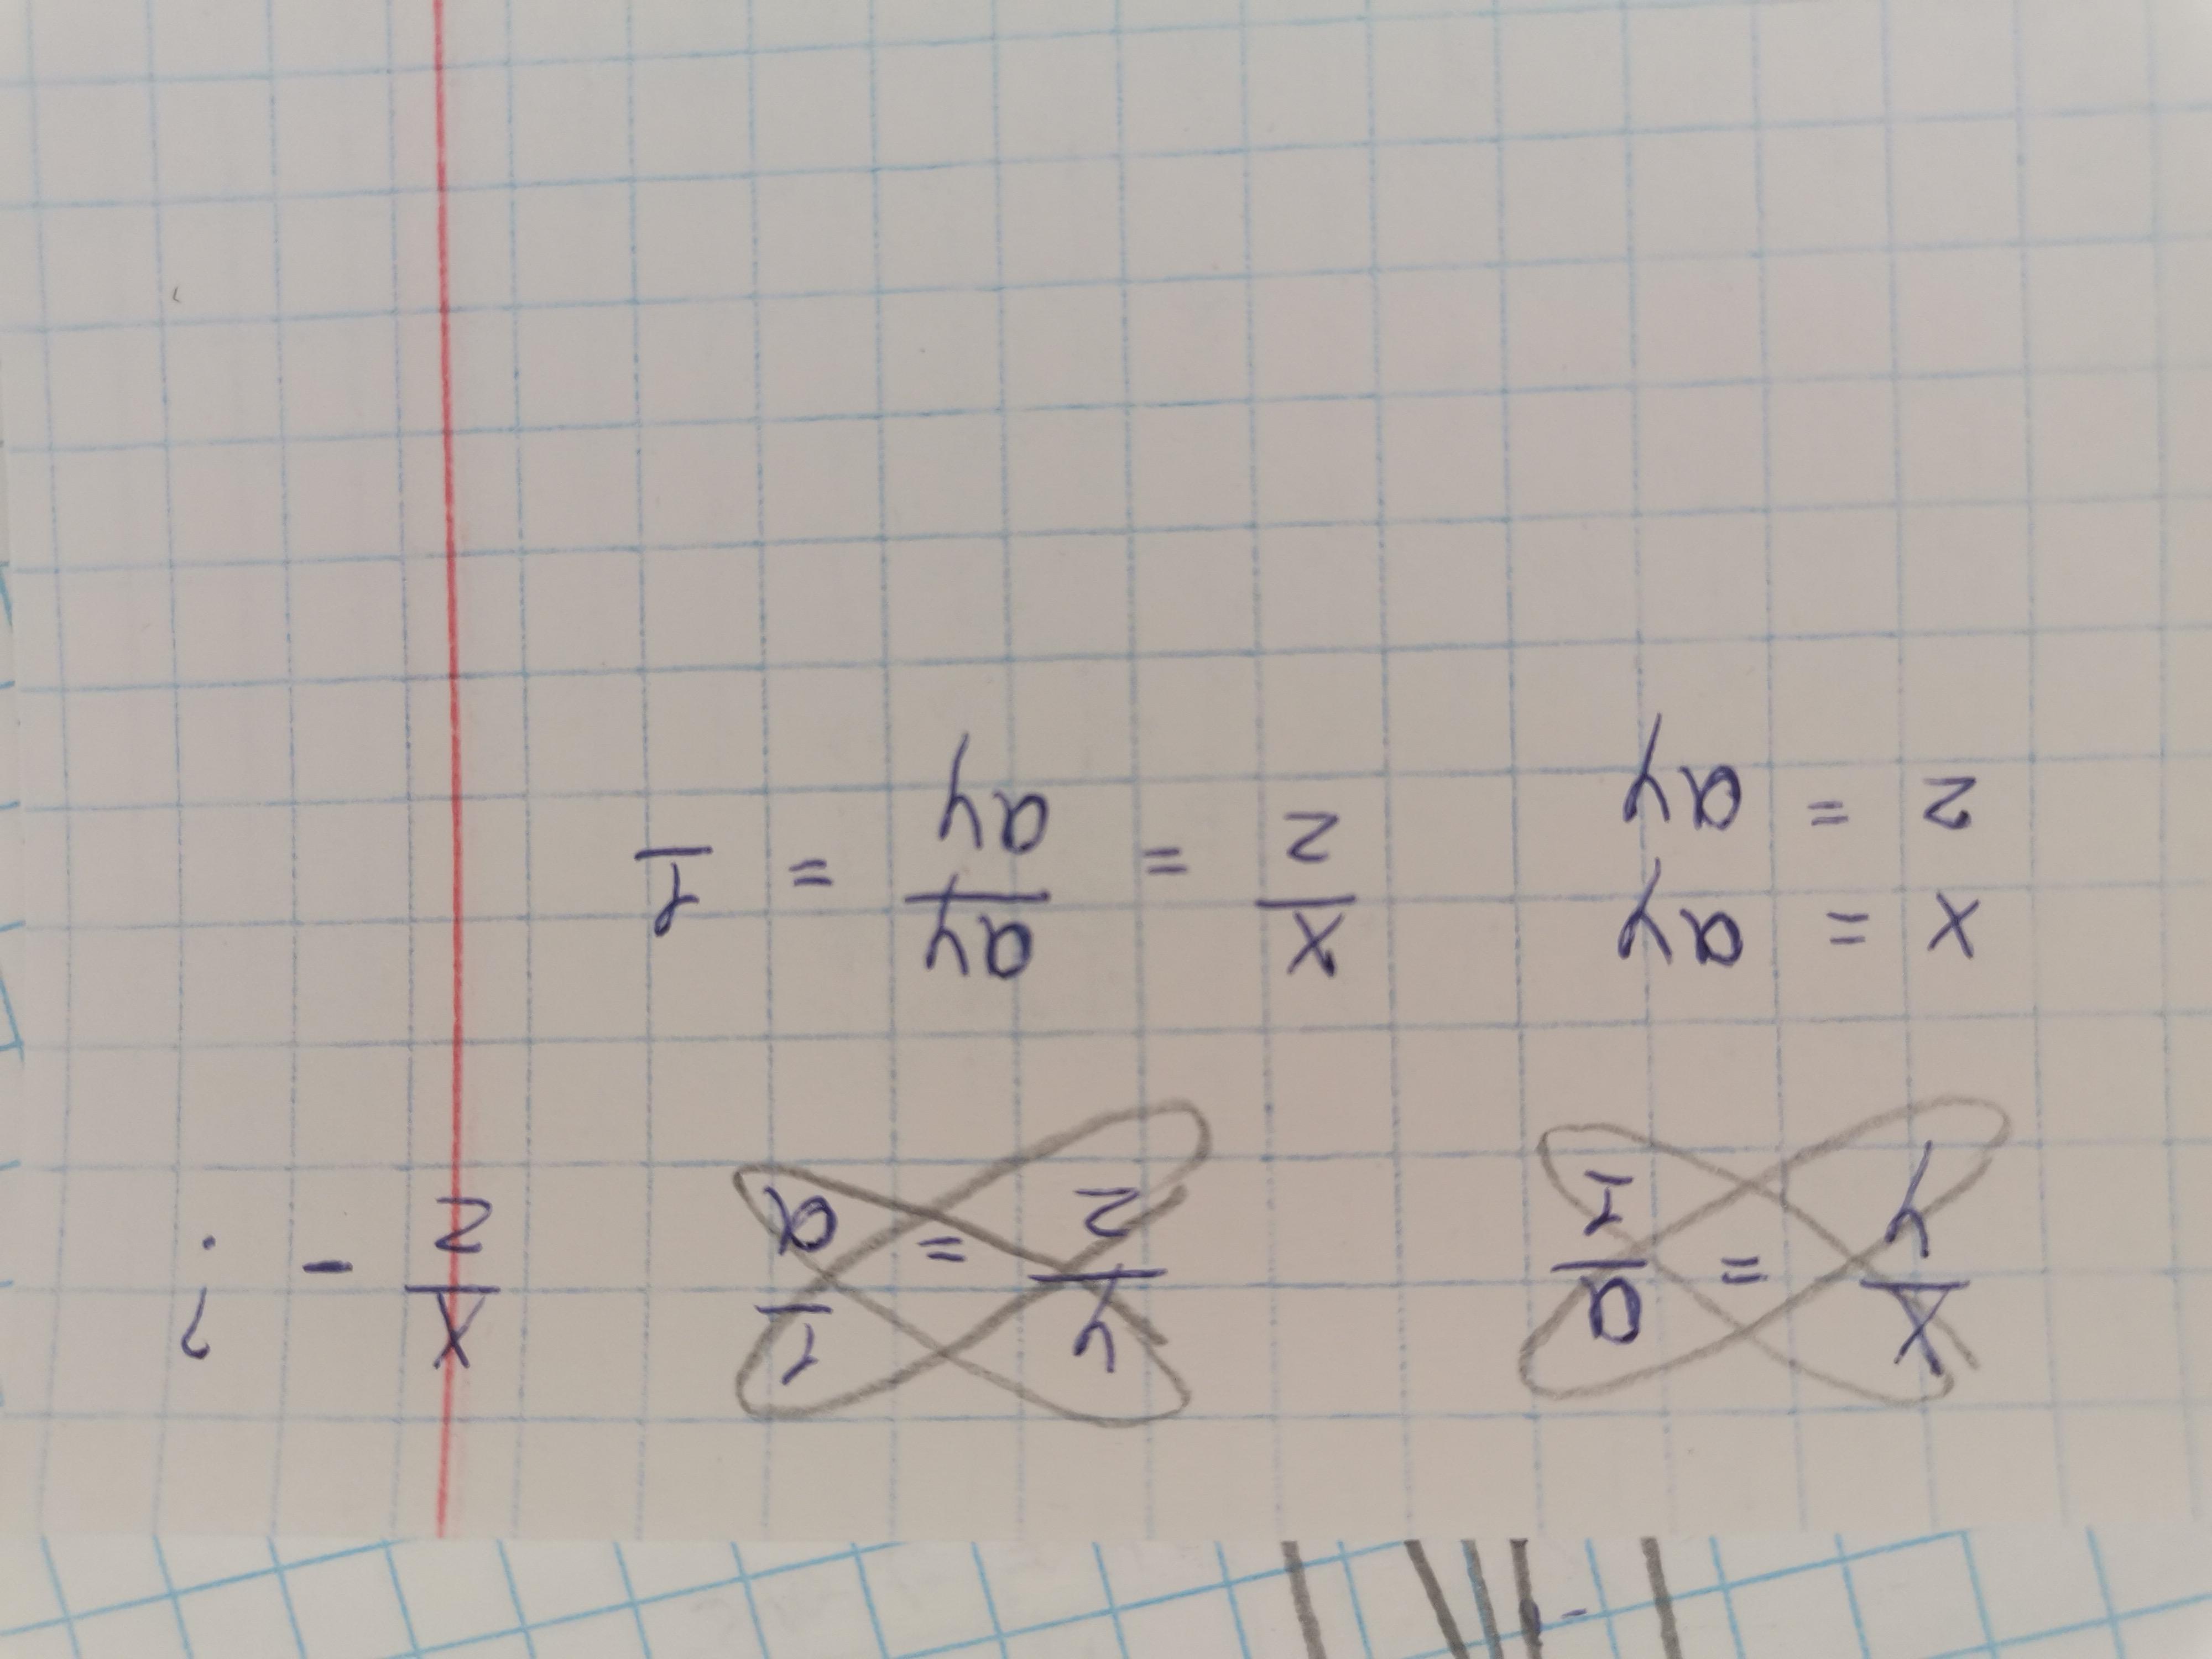 x/y = a/1 y/z = 1/a x/z - ?
x = ay
z = ay
x/z = ay/ay = 1